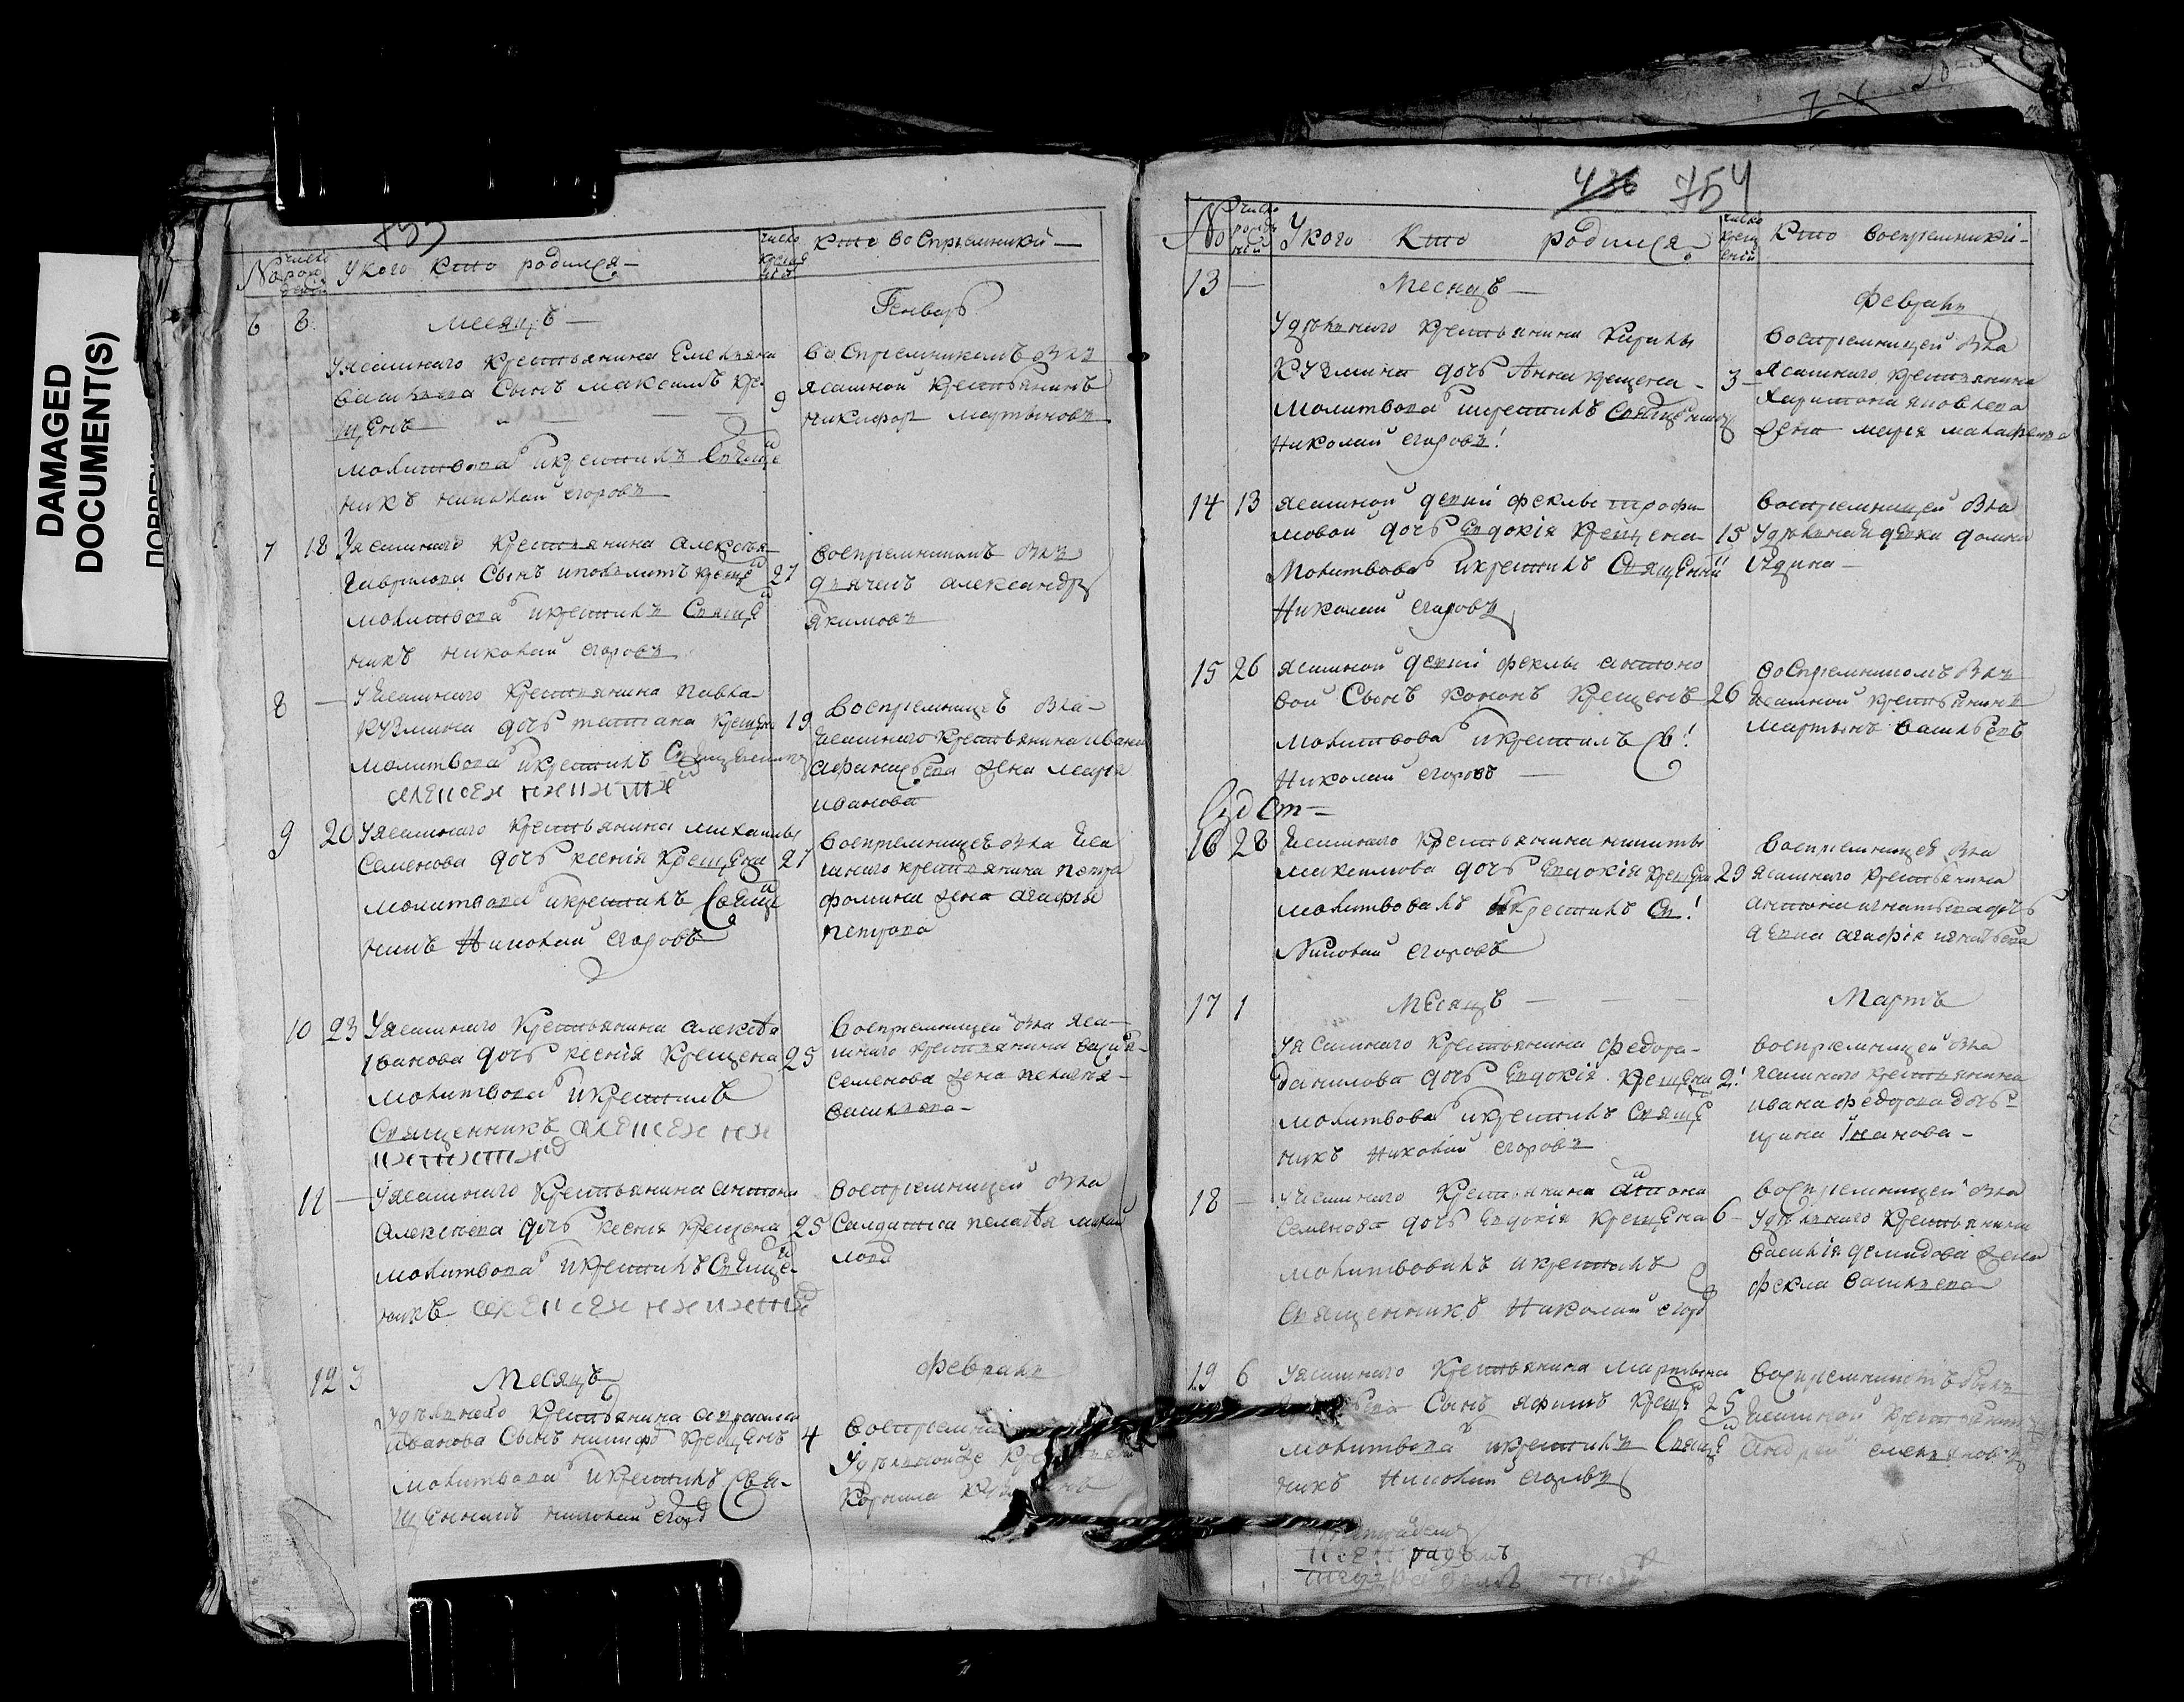 DAMAGED
DOCUMENT(S)
753
No
число
рож
У кого кто родился
число
крещ
Кто воспремникой
6 8 Месяцъ
Генварь
У ясашнаго крестьянина Емельяна
Васильева сынъ Максимъ кре-
щенъ 9
молитвовалъ и крестилъ Свяще
никъ Николай Егоровъ
воспремникомъ былъ
ясашной крестьянинъ
Никифоръ Мартыновъ
7 18 У ясашнаго крестьянина Алексея
Гаврилова сынъ Иполитъ креще 27
молитвовалъ и крестилъ Свяще
никъ Николай Егоровъ
воспремникомъ былъ
дьячекъ Александръ
Якимовъ
8 — У ясашнаго крестьянина Павла
Кузмина дочь Татиана крещена 19
молитвовалъ и крестилъ Священникъ
воспремницей была
ясашнаго крестьянина Ивана
Афанасьева жена Марья
Иванова
9 20 У ясашнаго крестьянина Михаилы
Семенова дочь Ксения крещена 21
молитвовалъ и крестилъ Свяще
никъ Николай Егоровъ
воспремницей была яса
шнаго крестьянина Петра
Фомина жена Агафья
Петрова
10 23 У ясашнаго крестьянина Алексѣя
Иванова дочь Ксения крещена 25
молитвовалъ и крестилъ
Священникъ
воспремницей была яса-
шнаго крестьянина
Семенова жена Пелагия
Васильева
11 — У ясашнаго крестьянина Антона
Алексеева дочь Ксения крещена 25
молитвовалъ и крестилъ Свяще-
никъ
воспремницей была
Салдатка Пелагѣя Михай
лова
12 3 Месяцъ
Февраль
Удельнаго крестьянина
Иванова сынъ крещенъ 4
молитвовалъ и крестилъ Свя-
щенникъ Николай Егоро
Корнила
436 754
No
число
рожд
ений
У кого кто родился
число
крещ
ений
Кто воспремникой
13 — Месяцъ
Февраль
Удѣльнаго крестьянина Кирилы
Кузмина дочь Анна крещена 3
молитвовалъ и крестилъ Священникъ
Николай Егоровъ
воспремницей была
ясашнаго крестьянина
Харитона Яковлева
жена Марья Макарьева
14 13 ясашной девки Феклы Трофи-
мовой дочь Евдокія крещена 15
молитвовалъ и крестилъ Священни
Николай Егоровъ
воспремницей была
Удѣльная девка Домна
15 26 ясашной девки Феклы Антоно
вой сынъ Кононъ крещенъ 26
молитвовалъ и крестилъ Св!
Николай Егоровъ
воспремникомъ былъ
ясашной крестьянинъ
Мартынъ Васильевъ
16 28 ясашнаго крестьянина Никиты
Максимова дочь Евдокія крещена 29
молитвовалъ и крестилъ Св!
Николай Егоровъ
воспремницей была
ясашнаго крестьянина
Антона Игнатьева дочь
девка Агафія Игнатьева
17 1 Месяцъ
Мартъ
У ясашнаго крестьянина Федора
Данилова дочь Евдокія крещена 2!
молитвовалъ и крестилъ Свяще
никъ Николай Егоровъ
воспремницей была
ясашнаго крестьянина
Ивана Федорова дочь
Ирина Іванова
18 — У ясашнаго крестьянина Антона
Семенова дочь Евдокія крещена 6
молитвовалъ и крестилъ
Священникъ Николай Егоро
воспремницей была
Удѣльнаго крестьянина
Василія Демидова жена
Фекла Васильева
19 6 У ясашнаго крестьянина Мартына
сынъ Яфимъ креще 25
молитвовалъ и крестилъ Свяще
никъ Николай Егоровъ
воспремникомъ былъ
ясашной крестьянинъ
Андрей Емельяновъ